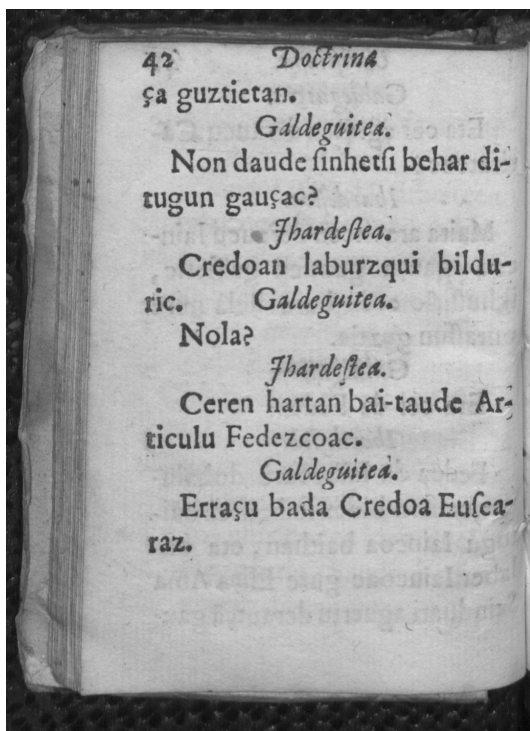 42 Doctrina
ça guztietan.
Galdeguitea.
Non daude ſinhetſi behar di-
tugun gauçac?
Jhardeſtea.
Credoan laburzqui bildu-
ric. Galdeguitea.
Nola?
Jhardeſtea.
Ceren hartan bai-taude Ar-
ticulu Fedezcoac.
Galdeguitea.
Erraçu bada Credoa Euſca-
raz.